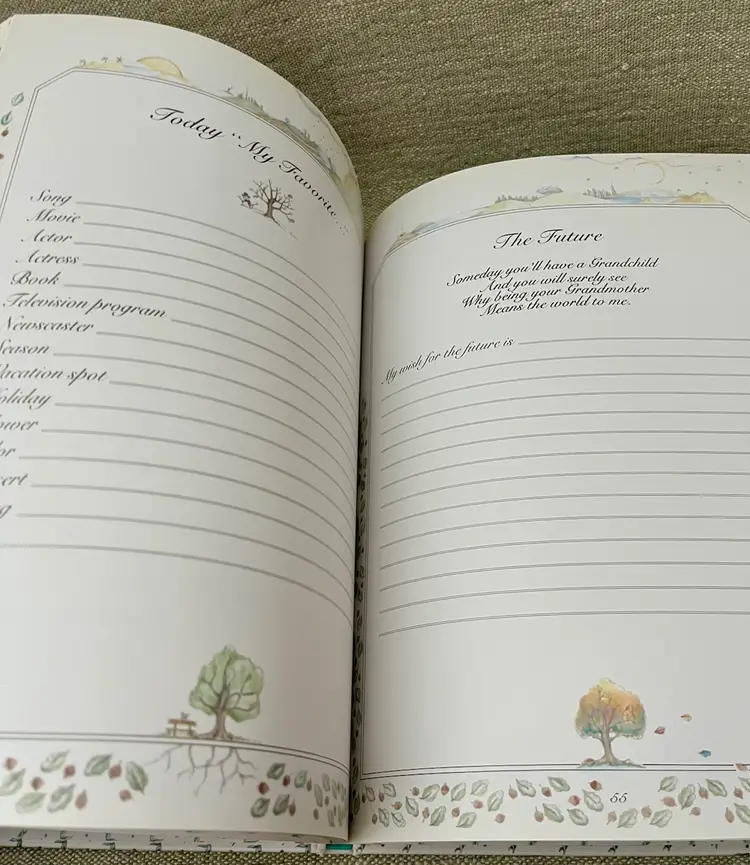 Today "My Favorite...
Song
Movie
Actor
Actress
Book
Television program
Newscaster
Season
Vacation spot
oliday
ower
or
ert
g
The Future
Someday you'll have a Grandchild
And you will surely see
Why being your Grandmother
Means the world to me.
My wish for the future is
55